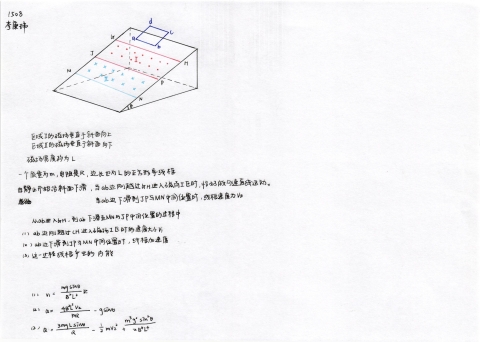 1508
d
c
a
b
M
J
P
N
区域I的磁场垂直于斜面向上
区域II的磁场垂直于斜面向下
磁场宽度均为L
一个质量为m,电阻为R,边长也为L的正方形导线框
由静止开始沿斜面下滑,当ab边刚越过GH进入磁场I区时,恰好做匀速直线运动。
当ab边下滑到JP与MN中间位置时,线框速度为V₂
从ab进入GH,到ab下滑至MN与JP中间位置的过程中
(1) ab边刚越过GH进入磁场I区时的速度大小V₁
(2) ab边下滑到JP与MN中间位置时,线框加速度
(3) 这一过程线框产生的内能
(1): V₁ = mg sinθ / B²L² R
(2): a = 4B²L²V₂ / mR - g sinθ
(3): Q = 3mgL sinθ / 2 - 1/2 mV₂² +